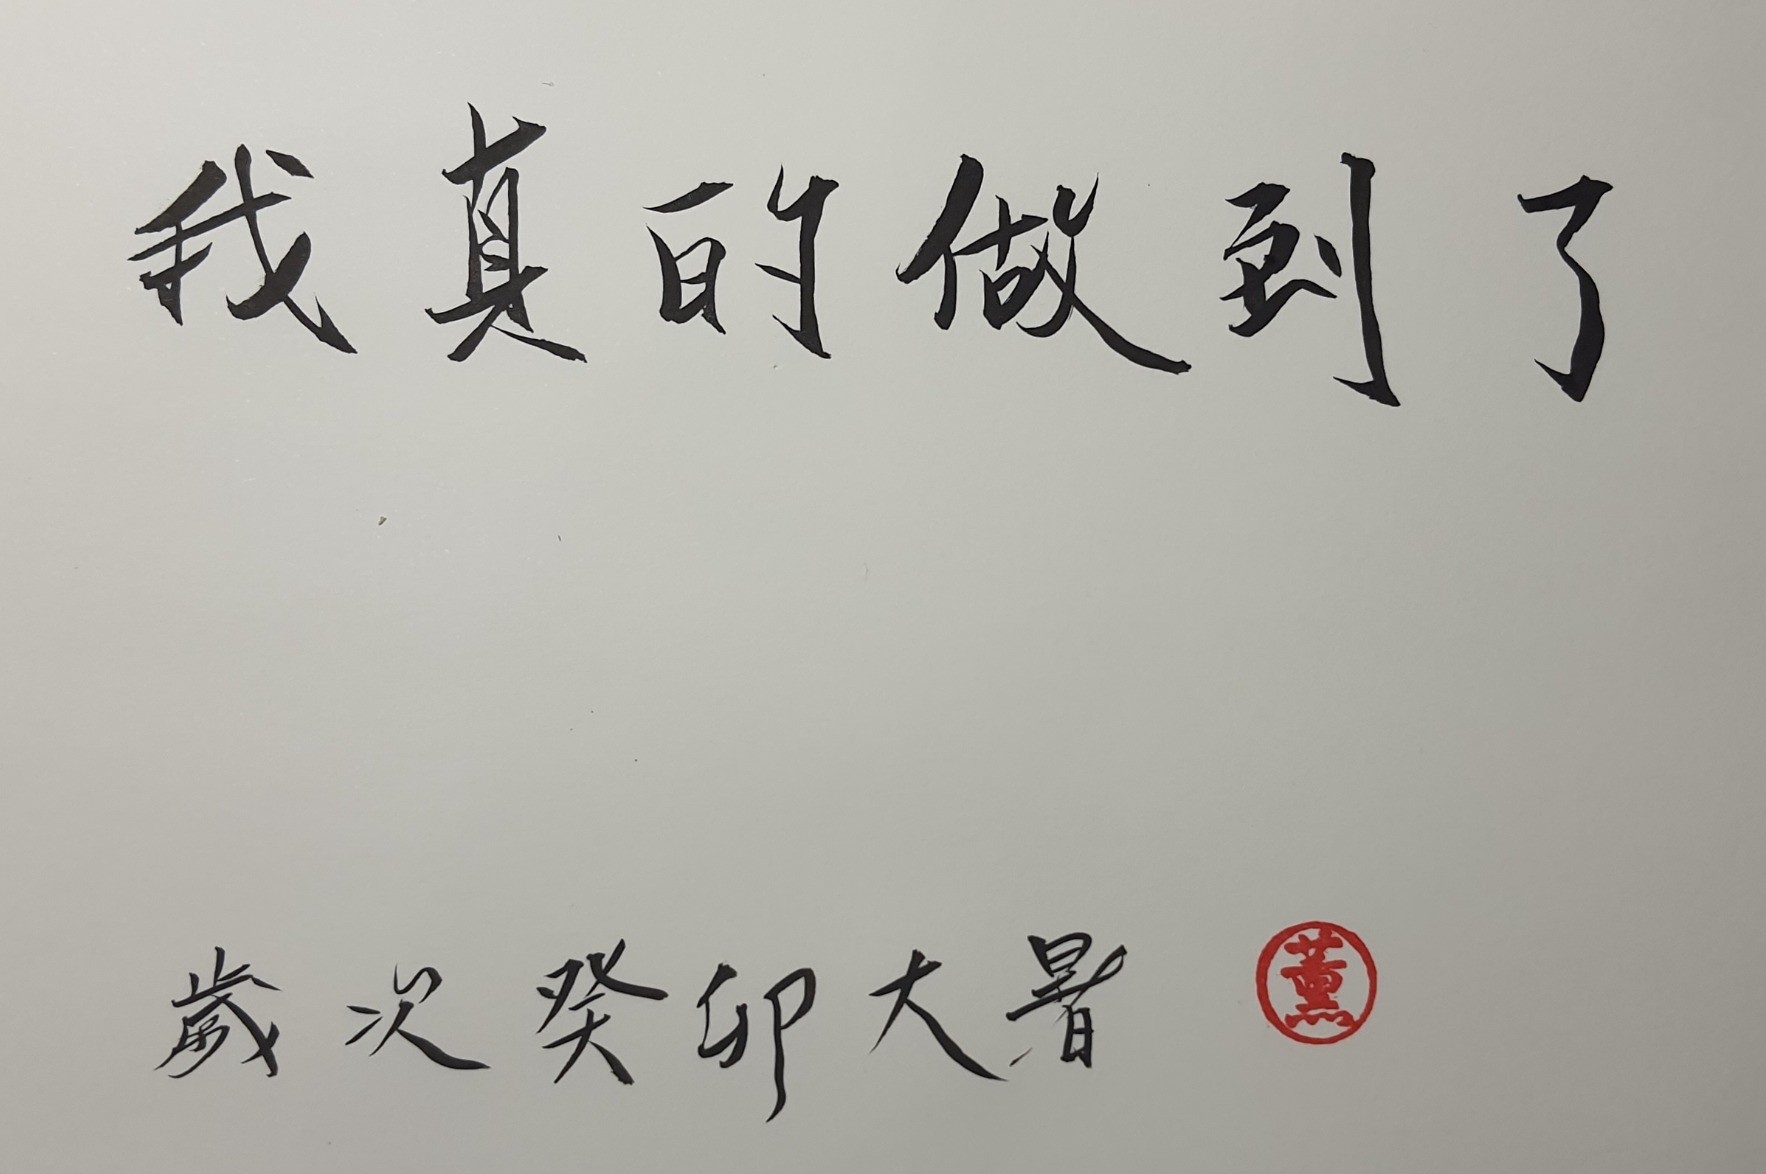 我真的做到了
歲次癸卯大暑 薰